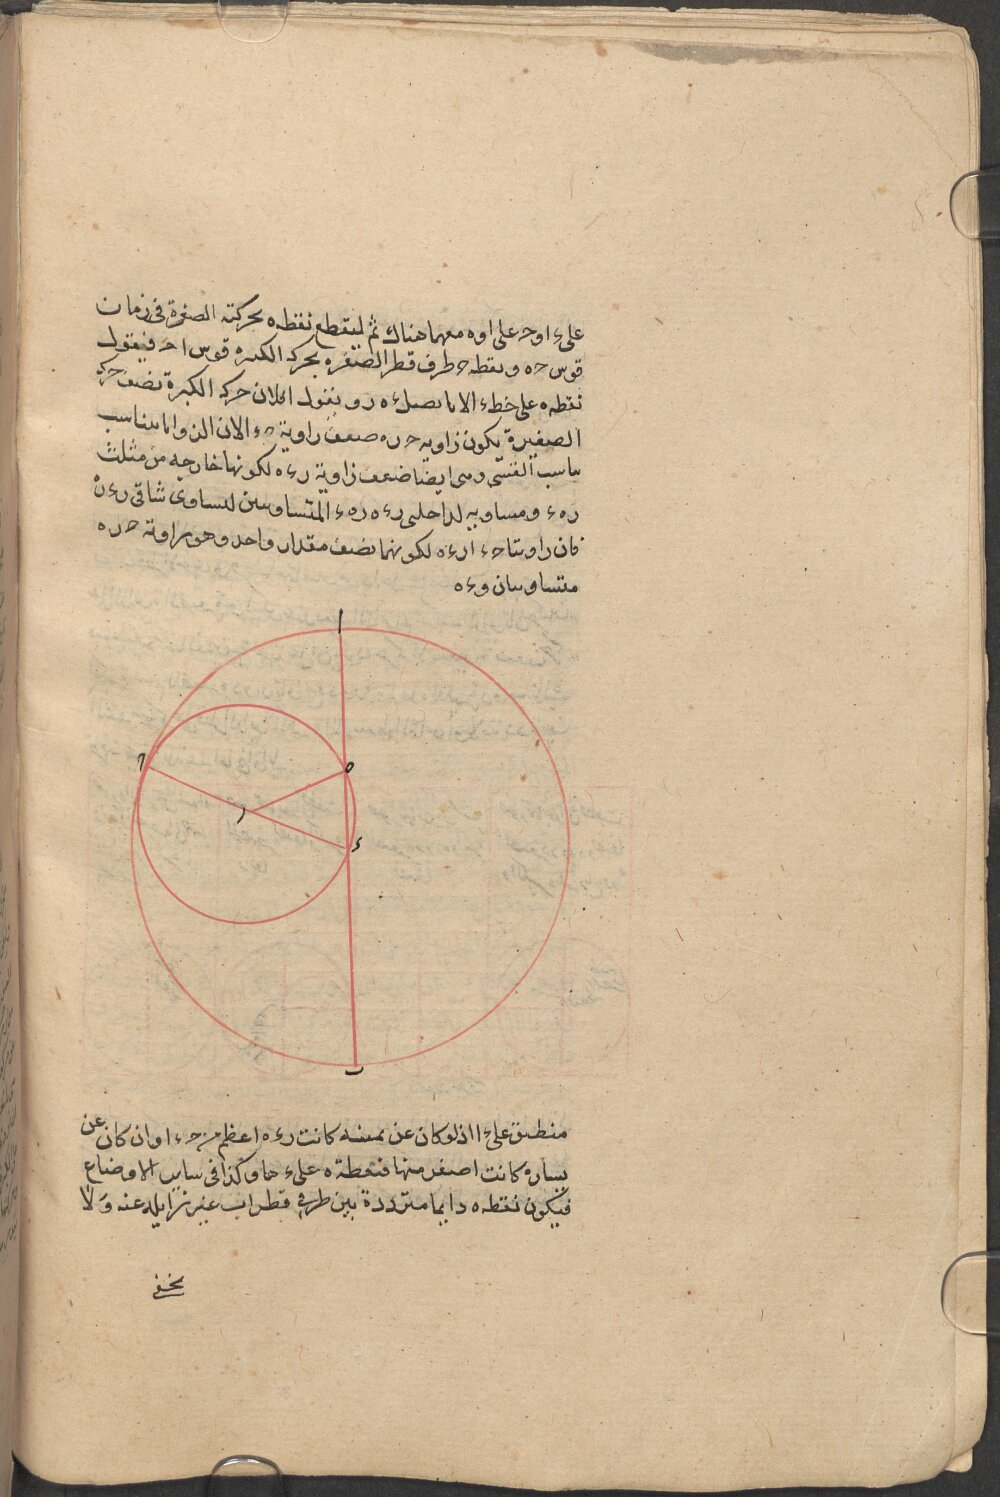 علىء اوح على اوه معهما هناك ثم ليقطع نقطه ه بحركته الصغيرة فى زمان
قوس ح ه ونقطه ح طرف قطر الصغيره بحركه الكبيره قوس ا ح فنقول
نقطه ه على خط ء ا لانا نصل ء ه ر و نقول فلان حركه الكبيرة نصف حركه
الصغيرة يكون زاويه ح ر ه ضعف زاوية ح ء ا لان الزوايا يتناسب
تناسب القسى وهى ايضا ضعف زاوية ر ء ه لكونها خارجه من مثلث
ر ه ء ومساويه لداخلتى ر ء ه ر ه ء المتساويتين لتساوى ساقى ر ء ر ه
فان زاويتا ح ء ا ر ء ه لكونهما نصف مقدار واحد وهو زاوية ح ر ه
متساويتان و ء ه
ا
ح
ه
ر
ء
ب
منطبق على ء ا اذ لو كان عن يمينه كانت ر ء ه اعظم من ح ء ا وان كان عن
يساره كانت اصغر منها فنقطة ه على ء حا وكذا فى ساير الاوضاع
فيكون نقطه ه دايما مترددة بين طرفى قطر اب غير زايله عنه ولا
يخفى